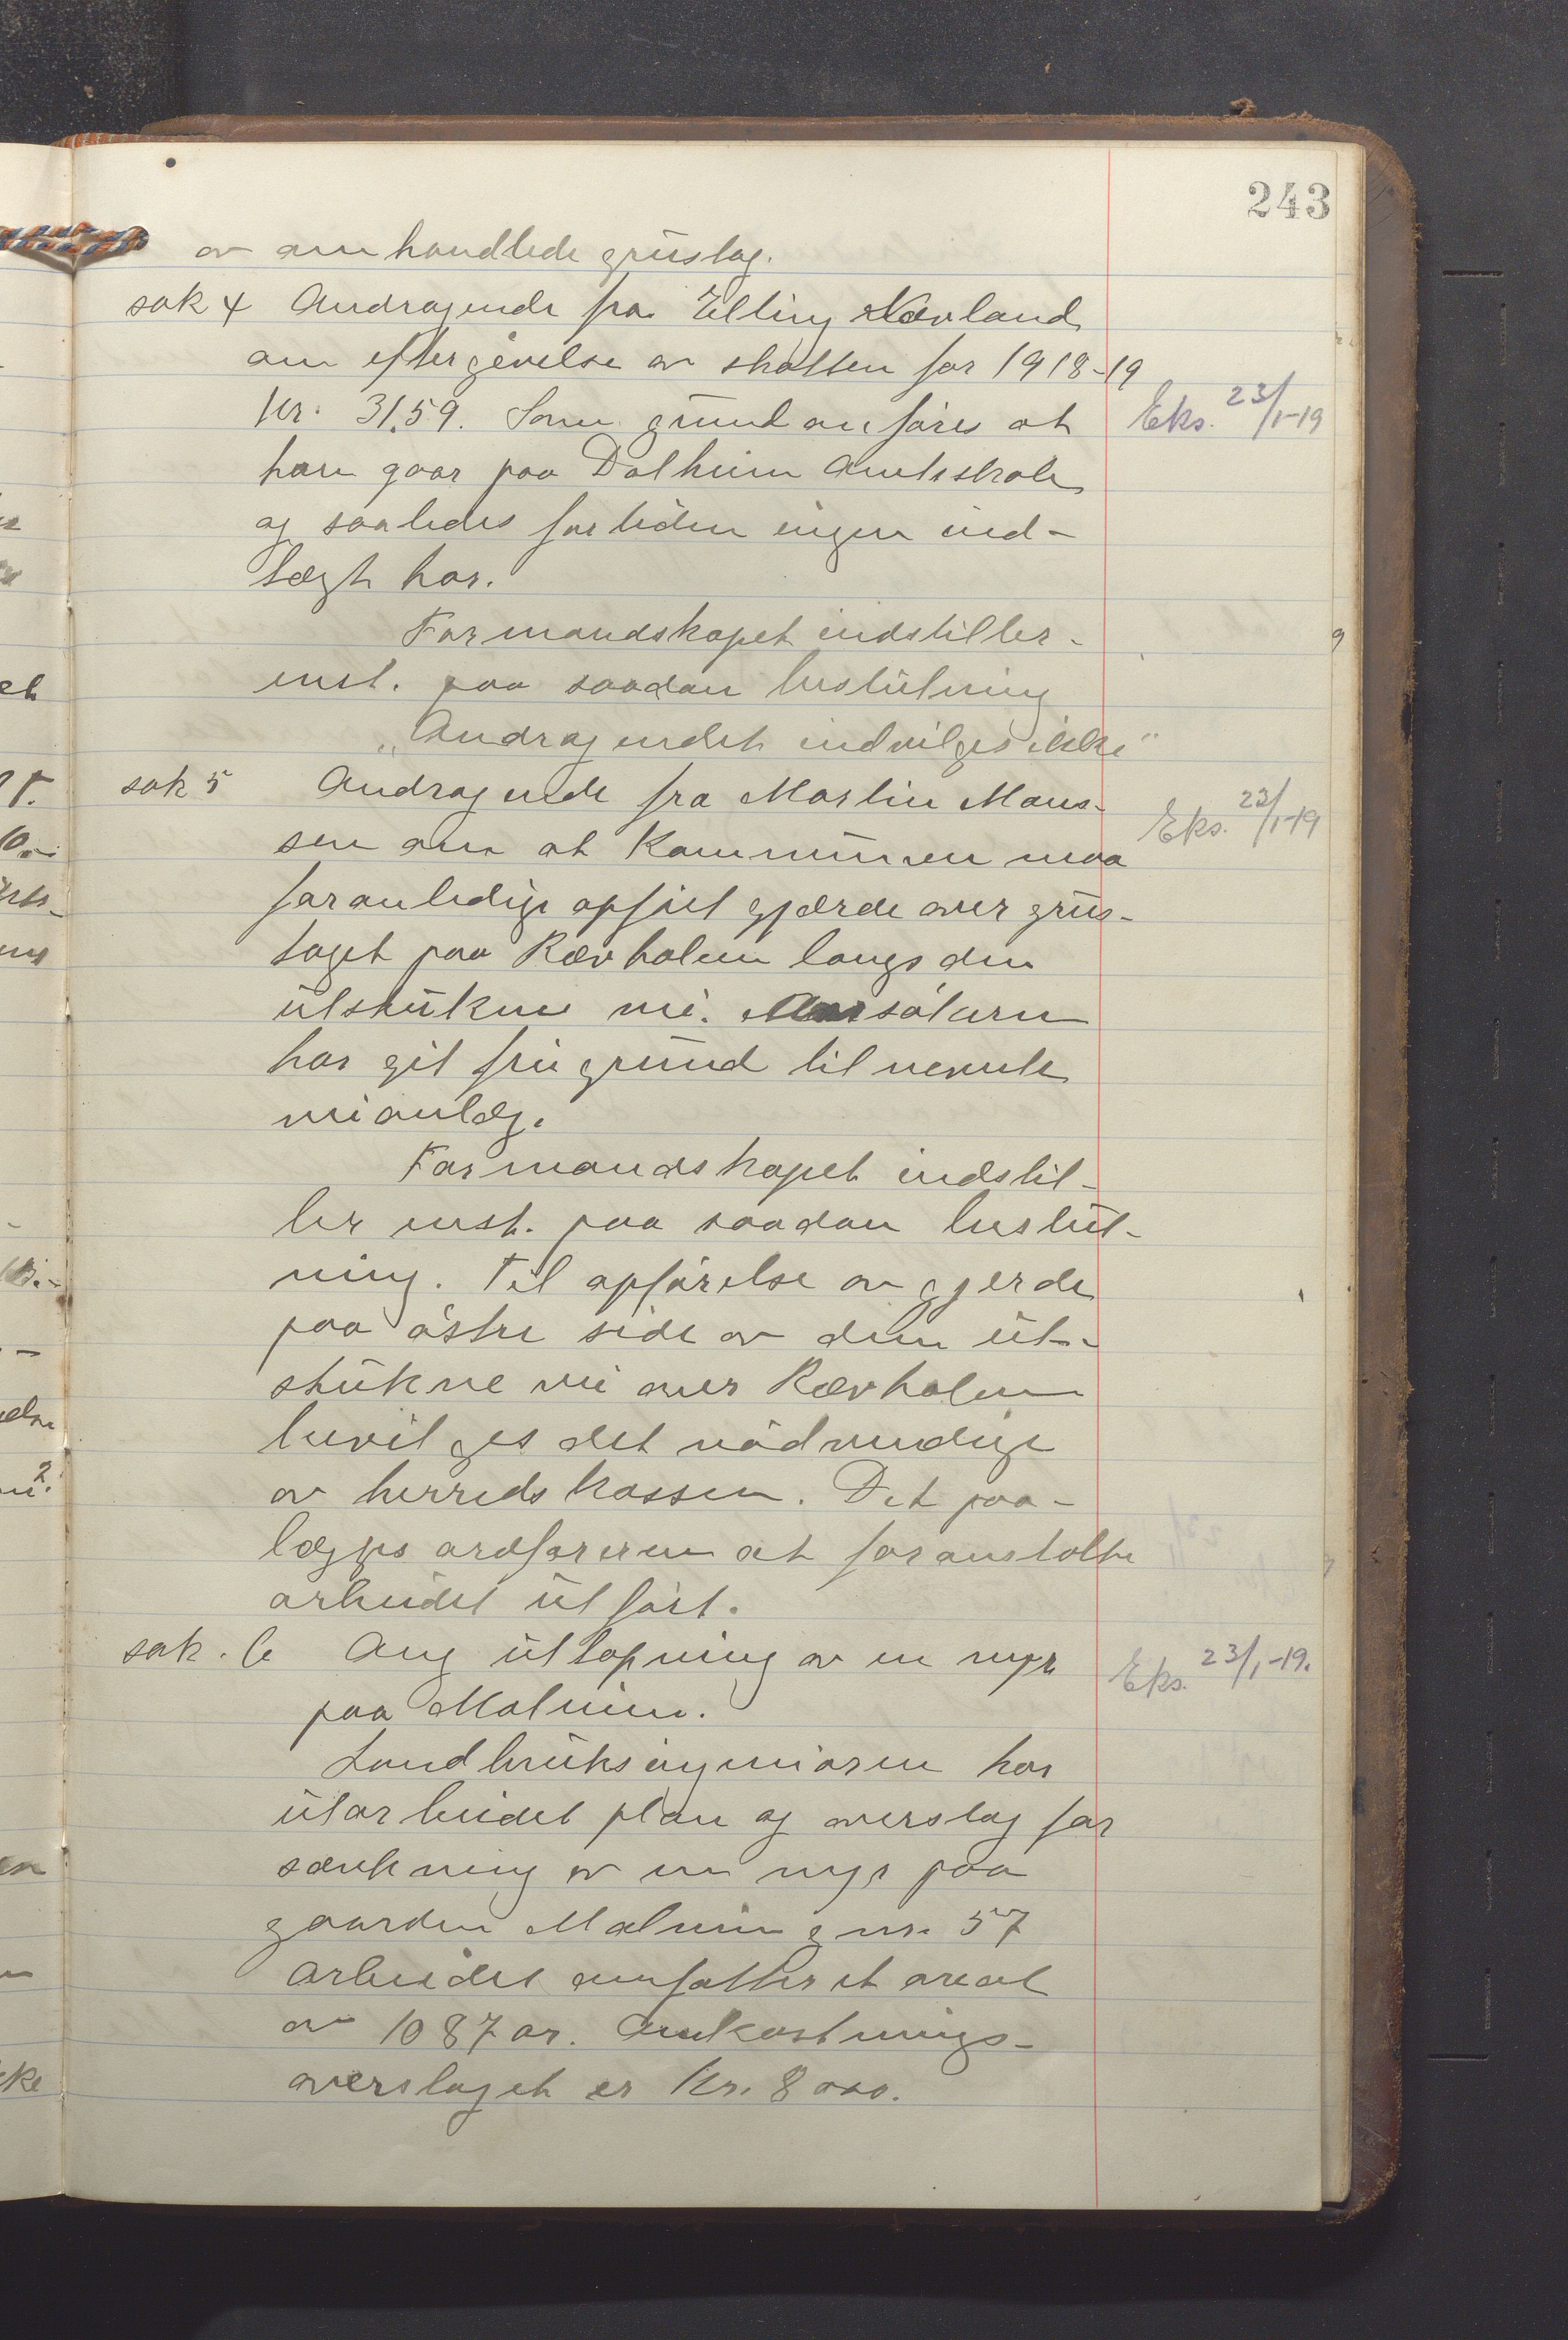 243
av omhandlede grustag.
sak 4 Andragende fra Elling Nævland
om eftergivelse av skatten for 1918-19
Kr. 31,59. Som grund anføres at
Eks. 23/1-19
han gaar paa Dalheim Amtsskole
og saaledes for tiden ingen ind-
tægt har.
Formandskapet indstiller-
enst. paa saadan beslutning
„Andragendet indvilges ikke"
sak 5 Andragende fra Martin Mons-
Eks. 23/1-19
sen om at Kommunen maa
foranledige opført gjærde over grus-
taget paa Rævholen langs den
utstukne vei. Ansøkeren
har git fri grund til nevnte
veianlæg.
Formandskapet indstil-
ler enst. paa saadan beslut-
ning. Til opførelse av gjerde
paa østre side av den ut-
stukne vei over Rævholen
bevilges det nødvendige
av herredskassen. Det paa-
lægges ordføreren at foranstalte
arbeidet utført.
sak. 6 Ang uttapning av en myr
Eks. 23/1-19.
paa Malmin.
Landbruksingeniøren har
utarbeidet plan og overslag for
sænkning av en myr paa
gaarden Malmin gnr. 57
Arbeidet omfatter et areal
av 1087 ar. Omkostnings-
overslaget er Kr. 8000.